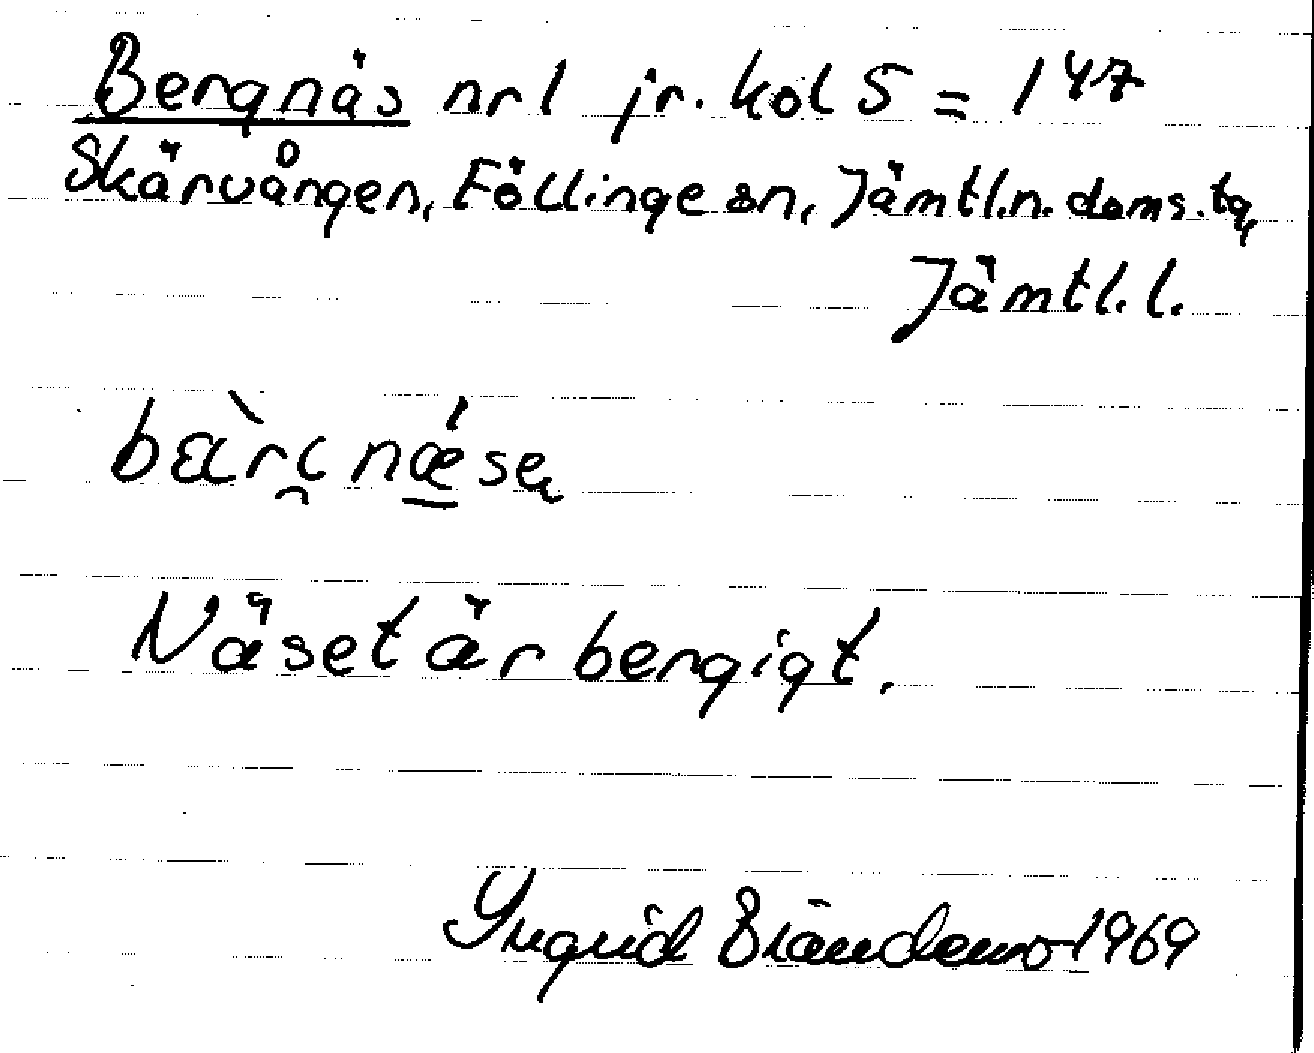 Bergnäs nr 1 jr. kol 5 = 147
Skärvången, Föllinge sn, Jämtl.n. doms.tg,
Jämtl. l.
Näset är bergigt.
Ingrid Brändemo 1969